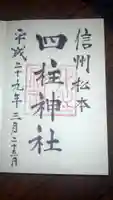 信州松本
四柱神社
平成二十九年三月二十五日